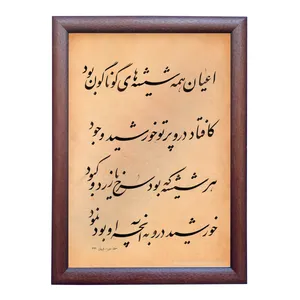 اعیان همه شیشه‌های گوناگون بود
کافتاد در و پرتو خورشید وجود
هر شیشه که بود سرخ یا زرد و کبود
خورشید در و به آنچه او بود نمود